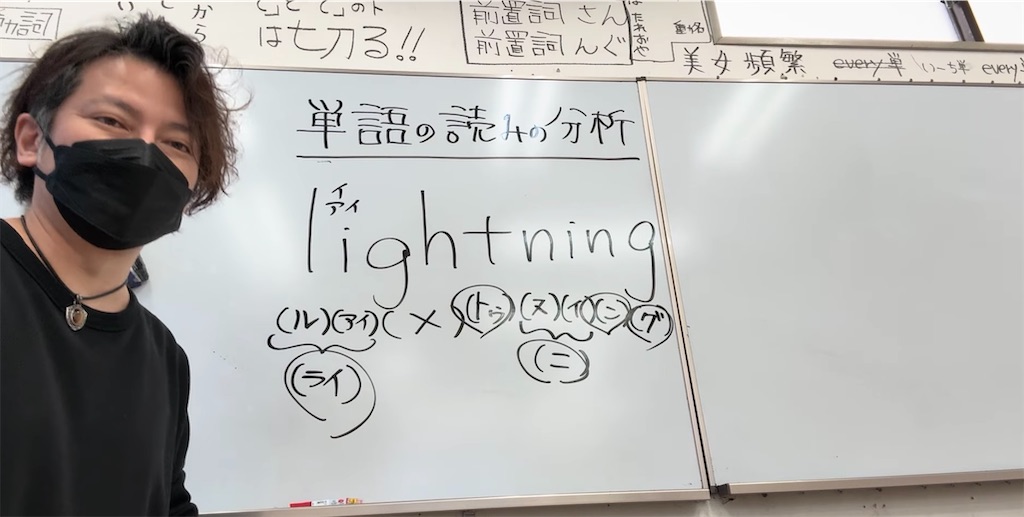 動詞
から
は七刀る!!
前置詞 さん
前置詞 んぐ
美女 頻繁 every単 いーち単 every
単語の読みの分析
イ
アイ
lightning
(ル)(アイ)(×)(トゥ)(ヌ)(イ)(ニ)(グ)
(ライ) (ニ)